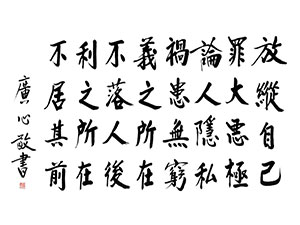 放縱自己
罪大惡極
論人隱私
禍患無窮
義之所在
不落人後
利之所在
不居其前
廣心敬書